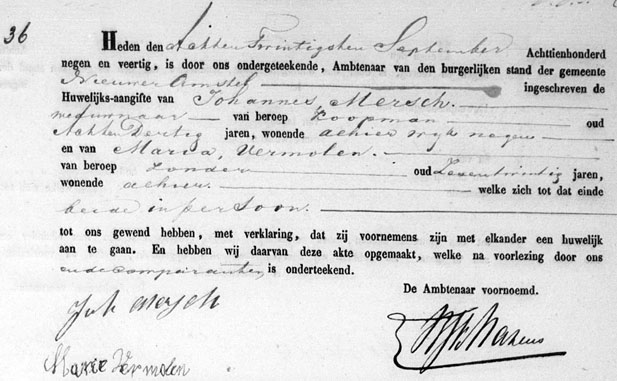 36
Heden den Achten Twintigsten September Achttienhonderd
negen en veertig, is door ons ondergeteekende, Ambtenaar van den burgerlijken stand der gemeente
Nieuwer Amstel ingeschreven de
Huwelijks-aangifte van Johannes, Mersch.
weduwnaar van beroep Koopman oud
Achten Dertig jaren, wonende alhier wijk negen
en van Maria, Vermolen.
van beroep Zonder oud Zeventwintig jaren,
wonende alhier. welke zich tot dat einde
beide in persoon.
tot ons gewend hebben, met verklaring, dat zij voornemens zijn met elkander een huwelijk
aan te gaan. En hebben wij daarvan deze akte opgemaakt, welke na voorlezing door ons
en de comparanten, is onderteekend.
De Ambtenaar voornoemd.
Joh Mersch
Marie Vermolen